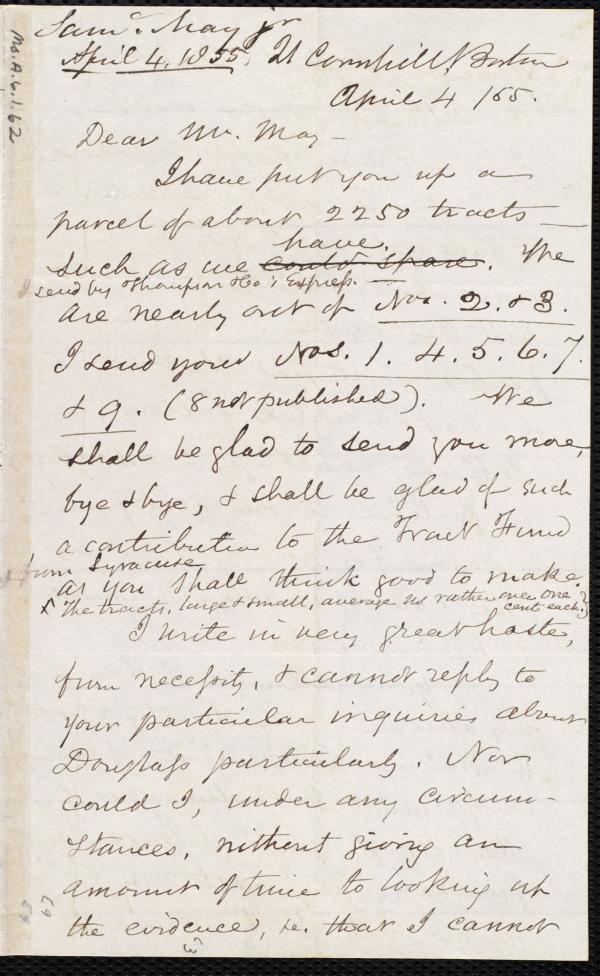 Ms. A. 6.1.62
Saml. May jr
April 4, 1855. 21 Cornhill, Boston
April 4 /55.
Dear Mr. May -
I have put you up a
parcel of about 2250 tracts
have.
such as we could spare. We
send by Thompson & Co's Express.
are nearly out of Nos. 2. & 3.
I send your Nos. 1. 4. 5. 6. 7.
& 9. (8 not published). We
shall be glad to send you more,
bye & bye, & shall be glad of such
a contribution to the Tract Fund
from Syracuse
as you shall think good to make.
x The tracts, large & small, average us rather over one
cent each.}
I write in very great haste,
from necessity, & cannot reply to
your particular inquiries about
Douglass particularly. Nor
could I, under any circum-
stances, without giving an
amount of time to looking up
the evidence, &c. that I cannot